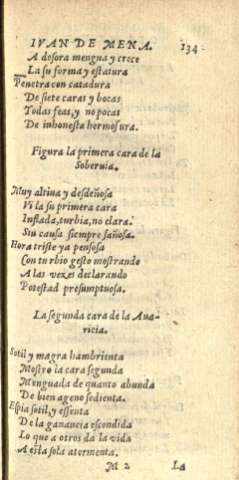 IVAN DE MENA. 134
A dosora mengua y crece
La su forma y estatura
Penetra con catadura
De siete caras y bocas
Todas feas, y no pocas
De inhonesta hermosura.
Figura la primera cara de la
Soberuia.
Muy altiua y desdeñosa
Vi la su primera cara
Inflada, turbia, no clara.
Siu causa siempre sañosa.
Hora triste ya pensosa
Con turbio gesto mostrando
A las vezes declarando
Potestad presumptuosa.
La segunda cara de la Aua-
ricia.
Sotil y magra hambrienta
Mostro la cara segunda
Menguada de quanto abunda
De bien ageno sedienta.
Espia sotil, y essenta
De la ganancia escondida
Lo que a otros da la vida
A esta sola atormenta.
M 2 La